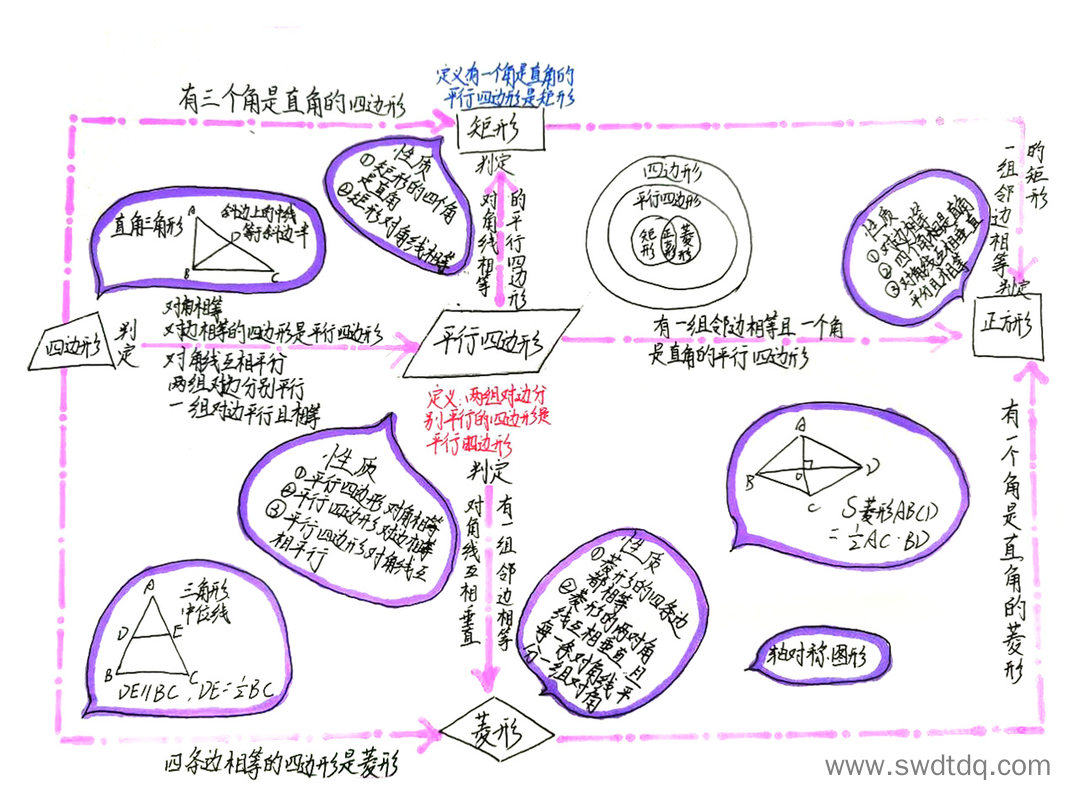 定义有一个角是直角的
平行四边形是矩形
有三个角是直角的四边形
矩形
判定
对角线相等
的平行四边形
性质
①矩形的四个角
是直角
②矩形对角线相等
直角三角形
斜边上的中线
等于斜边半
A
D
B
C
四边形
平行四边形
矩形
正形
菱形
性质
①对边相等
②四个角都是直角
③对角线互相垂直
平分且相等
一组邻边相等
的矩形
判定
正方形
四边形
判定
对角相等
对边相等的四边形是平行四边形
对角线互相平分
两组对边分别平行
一组对边平行且相等
平行四边形
有一组邻边相等且一个角
是直角的平行四边形
定义:两组对边分
别平行的四边形是
平行四边形
判定
对角线互相垂直
有一组邻边相等
性质
①平行四边形对角相等
②平行四边形对边相等
③平行四边形对角线互
相平行
A
B
O
D
C
S菱形ABCD
=½AC·BD
有一个角是直角的菱形
性质
①菱形的四条边
都相等
②菱形的两对角
线互相垂直,且
每一条对角线平
分一组对角
轴对称图形
三角形
中位线
A
D
E
B
C
DE∥BC,DE=½BC
菱形
四条边相等的四边形是菱形
www.swdtdq.com